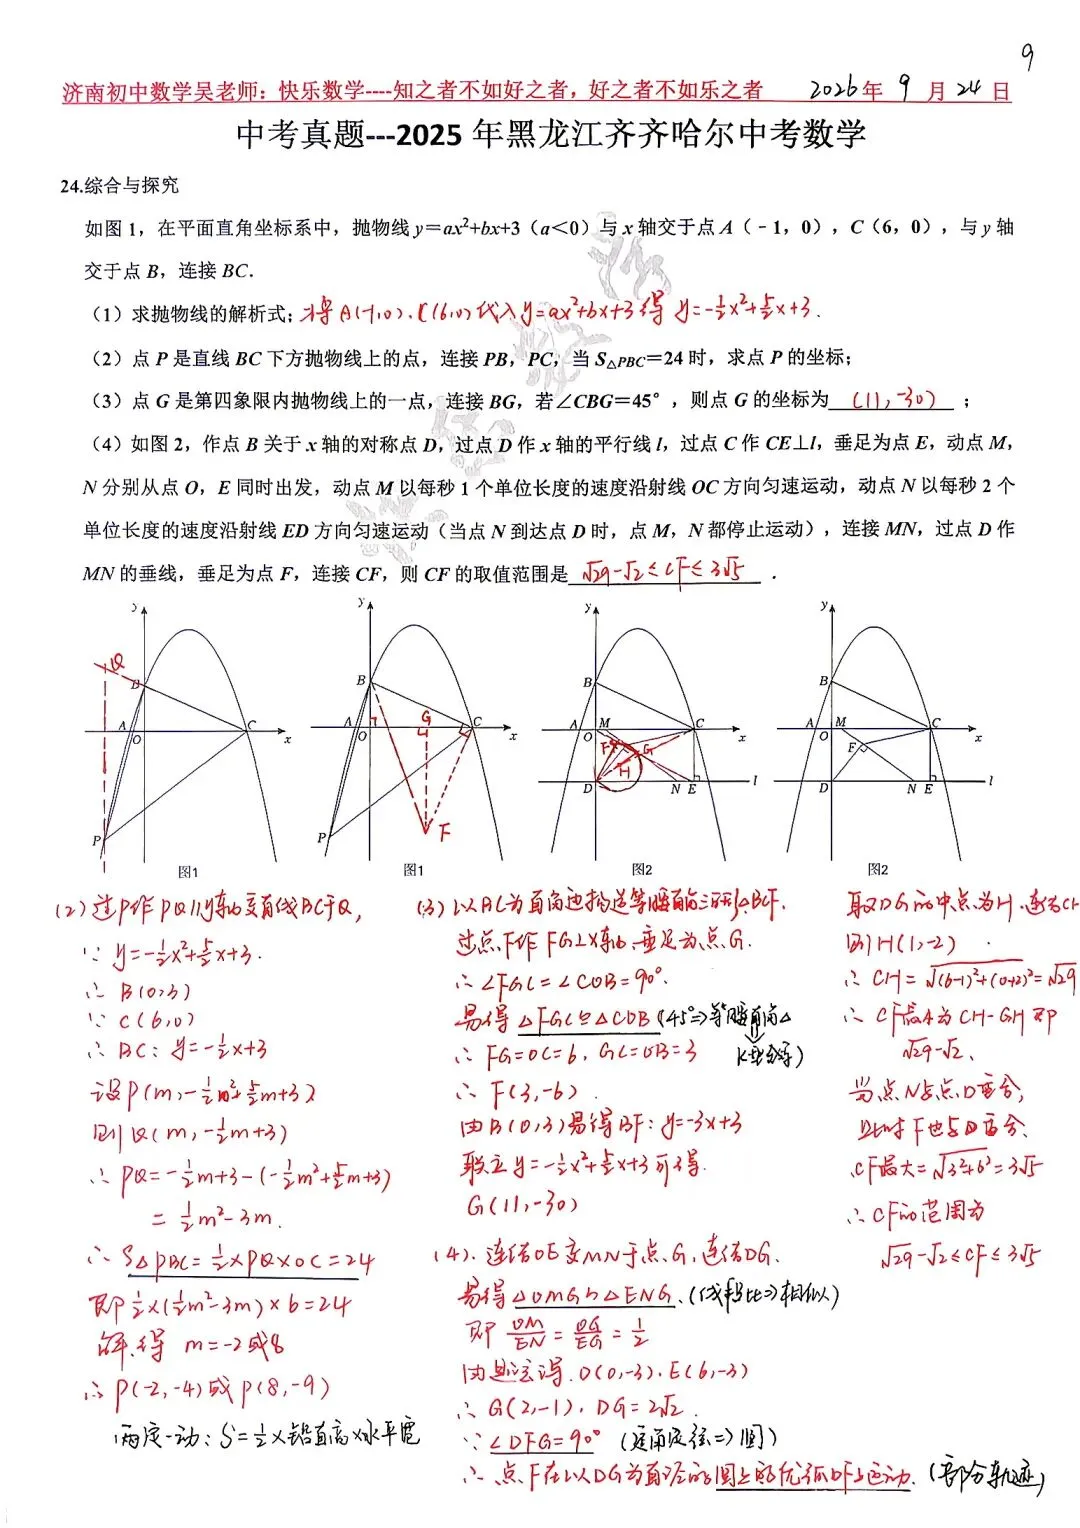 9
济南初中数学吴老师：快乐数学----知之者不如好之者，好之者不如乐之者 2026年 9 月 24 日
中考真题---2025 年黑龙江齐齐哈尔中考数学
24.综合与探究
如图 1，在平面直角坐标系中，抛物线 y＝ax²+bx+3（a＜0）与 x 轴交于点 A（﹣1，0），C（6，0），与 y 轴
交于点 B，连接 BC．
（1）求抛物线的解析式；将A(-1,0)、C(6,0)代入y=ax²+bx+3得 y=-½x²+5/2x+3.
（2）点 P 是直线 BC 下方抛物线上的点，连接 PB，PC，当 S△PBC＝24 时，求点 P 的坐标；
（3）点 G 是第四象限内抛物线上的一点，连接 BG，若∠CBG＝45°，则点 G 的坐标为 (11,-30) ；
（4）如图 2，作点 B 关于 x 轴的对称点 D，过点 D 作 x 轴的平行线 l，过点 C 作 CE⊥l，垂足为点 E，动点 M，
N 分别从点 O，E 同时出发，动点 M 以每秒 1 个单位长度的速度沿射线 OC 方向匀速运动，动点 N 以每秒 2 个
单位长度的速度沿射线 ED 方向匀速运动（当点 N 到达点 D 时，点 M，N 都停止运动），连接 MN，过点 D 作
MN 的垂线，垂足为点 F，连接 CF，则 CF 的取值范围是 √29-√2≤CF≤3√5 ．
y Q B A O C x P 图1
y B A O G C x P F 图1
y B A O M C x F G H D N E l 图2
y B A O M C x F D N E l 图2
(2)过P作PQ//y轴交直线BC于Q,
∵ y=-½x²+5/2x+3.
∴ B(0,3)
∵ C(6,0)
∴ BC: y=-½x+3
设P(m,-½m²+5/2m+3)
则Q(m,-½m+3)
∴ PQ=-½m+3-(-½m²+5/2m+3)
=½m²-3m.
∴ S△PBC=½×PQ×OC=24
即½×(½m²-3m)×6=24
解得 m=-2或8
∴ P(-2,-4)或P(8,-9)
两定一动：S=½×铅直高×水平宽
(3)以BC为直角边构造等腰直角三角形△BCF.
过点F作FG⊥x轴,垂足为点G.
∴ ∠FGC=∠COB=90°.
易得△FGC≌△COB(45°⇒等腰直角△
⇓
K型全等)
∴ FG=OC=6, GC=OB=3
∴ F(3,-6).
由B(0,3)易得BF: y=-3x+3
联立y=-½x²+5/2x+3可得.
G(11,-30)
(4). 连结OE交MN于点G,连结DG.
易得△OMG∽△ENG.(线段比⇒相似)
即 OM/EN=OG/EG=1/2
由题意得.D(0,-3).E(6,-3)
∴ G(2,-1). DG=2√2.
∵ ∠DFG=90° (定角定弦⇒圆)
∴ 点F在以DG为直径的圆上的优弧DF上运动.(部分轨迹)
取DG的中点为H.连结CH
则H(1,-2).
∴ CH=√(6-1)²+(0+2)²=√29
∴ CF最小为CH-GH即
√29-√2.
当点N与点D重合,
此时F也与D重合.
CF最大=√3²+6²=3√5
∴ CF的范围为
√29-√2≤CF≤3√5